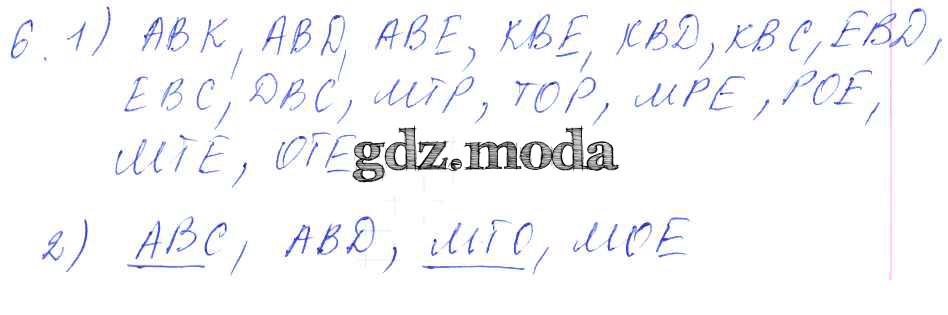 6. 1) ABK, ABD, ABE, KBE, KBD, KBC, EBD,
EBC, DBC, MTP, TOP, MPE, POE,
MTE, OTE
gdz.moda
2) ABC, ABD, MTO, MOE